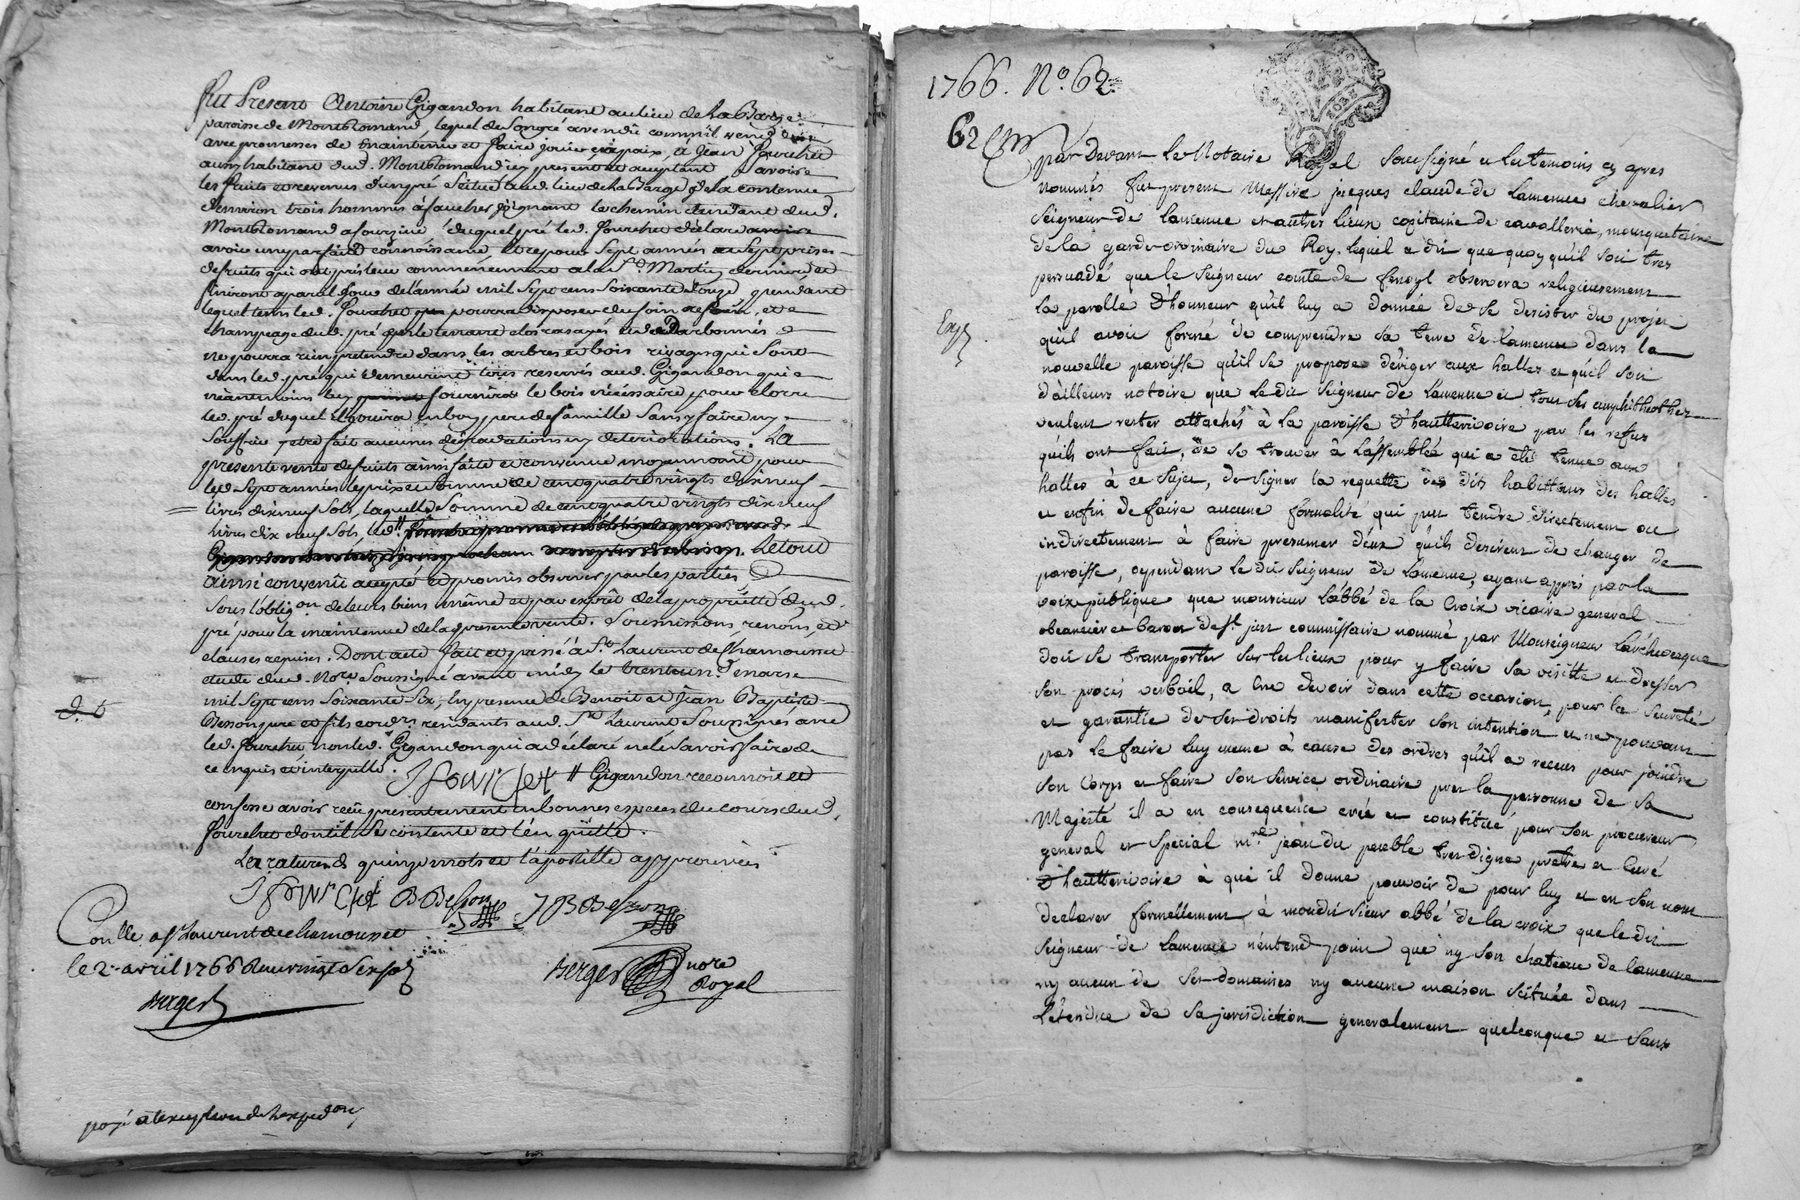 Fut Present Antoine Gigandon habitant au lieu de la Barge
paroisse de Montromand, lequel de son gré a vendu comm'il vend
avec promesses de maintenir et faire jouir en paix, à Jean Fourchet
aussy habitant dud. Montromand icy present et acceptant
les fruits et revenus d'un pré scitué aud. lieu de la Barge de la contenue
d'environ trois hommes à faucher joignant le chemin tendant dud.
Montromand a duquel pré led. Fourchet declare
avoir une parfaite connoissance, et ce pour sept années et sept prises
de fruits qui ont pris leur commencement a la St. Martin derniere et
finiront a pareil jour de l'année mil sept cens soixante douze pendant
lequel tems led. Fourchet pourra disposer du foin et
champeage dud. pré
ne pourra rien pretendre dans les arbres et bois qui sont
dans led. pré qui demeurent tous reservés aud. Gigandon qui
neanmoins luy fournira le bois nécéssaire pour clorre
led. pré duquel il jouira en bon pere de famille sans y faire ny
souffrir y etre fait aucunes dégradations ny deteriorations. La
presente vente de fruits ainsi faite et convenue moyennant pour
led. sept années le prix et somme de cent quatre vingts dix neuf
livres dix neuf sols, laquelle somme de cent quatre vingts dix neuf
livres dix neuf sols, led. #
Le tout
ainsi convenu accepté et promis observer par les parties
sous l'oblig.on de leurs biens même et par exprès de la propriété dud.
pré pour la maintenue de la presente vente. Soumissions, renon.s et
clauses requises. Dont acte fait et passé à St. Laurent de Chamousset
etude dud. No.re soussigné avant midy le trente un.e mars
mil sept cens soixante six, en presence de Benoit et Jean Baptiste
Besson pere et fils residants aud. St. Laurent soussignés avec
led. Fourchet non led. Gigandon qui a déclaré ne le savoir faire de
ce enquis et interpellé. J fourchet # Gigandon reconnoit et
confesse avoir reçu presentement en bonnes especes du cours dud.
Fourchet dont il se contente et l'en quitte.
Les ratures de quinze mots et l'apostille approuvées
J fourchet B Besson J B Besson
Conllé a St Laurent de chamousset
le 2. avril 1766
Berger
Berger nore
Royal
1766. No. 62.
62
Par Devant le Notaire Royal soussigné et les temoins cy après
nommés fut present Messire jacques claude de Lamenue chevalier
Seigneur de Lamenue et autres lieux capitaine de cavallerie, mousquetaire
de la garde ordinaire du Roy, lequel a dit que quoy qu'il soit tres
persuadé que le seigneur comte de fenoyl observera religieusement
la parolle d'honneur qu'il luy a donnée de se desister du projet
qu'il avoit formé de comprendre sa terre de Lamenue dans la
nouvelle paroisse qu'il se propose d'eriger aux halles et qu'il soit
Exp
d'ailleurs notoire que le dit seigneur de Lamenue et tous ses amphitheothes
veulent rester attachés à la paroisse d'hautterivoire par les refus
qu'ils ont fait, de se trouver à l'assemblée qui a été tenue aux
halles à ce sujet, de signer la requette des dits habittans des halles
et enfin de faire aucune formalité qui put tendre directement ou
indirectement à faire presumer d'eux qu'ils desirent de changer de
paroisse, cependant le dit seigneur de Lamenue, ayant appris par la
voix publique que monsieur l'abbé de la Croix vicaire general
obeancier et Baron de St. just commissaire nommé par Monseigneur l'archeveque
doit se transporter sur les lieux pour y faire sa visitte et dresser
son procés verbail, a cru devoir dans cette occasion, pour la seureté
et garantie de ses droits manifester son intention et ne pouvant
pas le faire luy meme à cause des ordres qu'il a receus pour joindre
son Corps et faire son service ordinaire pres la personne de sa
Majesté il a en consequence créé et constitué pour son procureur
general et special m.re jean du peuble tres digne pretre et curé
d'hautterivoire à qui il donne pouvoir de pour luy et en son nom
declarer formellement à mondit sieur abbé de la croix que le dit
seigneur de Lamenue n'entend point que ny son chateau de Lamenue
ny aucun de ses domaines ny aucune maison scituée dans
l'etendue de sa jurisdiction generalement quelconque et sans